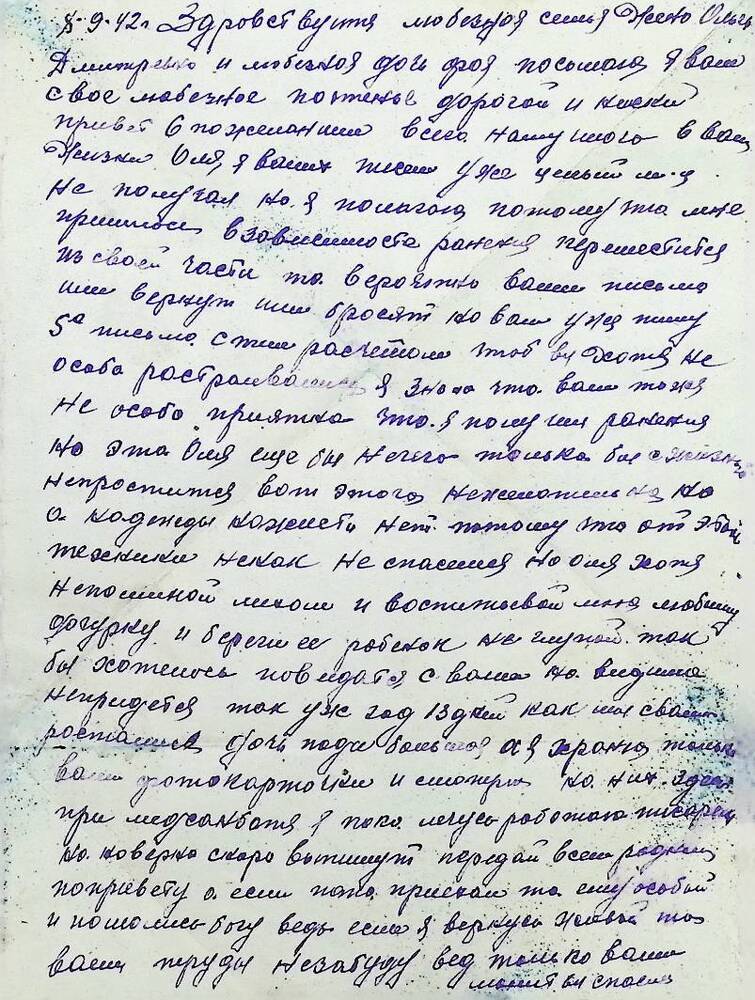 8-9-42г Здровствуитя любезная семья Жено Ольга
Дмитревно и любезная доч фоя посылаю я вам
свое любезное почтенье дорогой и ниский
привет в пожеланием всего наилучшого в ваш
Жизни Оля, я ваших писем уже целый м-ц
не получал но я полагаю потому что мне
пришлось взависимоста ранения переместится
из своей части то вероятно ваши письма
или вернут или бросят но вам уже пишу
5а письмо с тем расчетом чтоб вы хотя не
особо растраевались я знаю что вам тожа
не особо приятна что я получил ранения
но эта Оля еще бы нечего только бы с жизню
непростится вот этого нежелательно но
а надежды кажисть нет потому что от этой
техники некак не спасеша но Оля хотя
непоминой лихом и воспитывой мне любимую
дочурку и береги ее ребенок не глупой так
бы хотелось повидатся с вами но видима
непридется так уж год 13 дней как мы с вами
росталися дочь поди большая а я храню только
ваши фотокарточки и смотрю на них здесь
при медсанбатя я пока мнусь работаю писарем
но наверно скоро выпишут передай всем родным
попривету а если папа приехал то ему особый
и помолись богу ведь если я вернусь живой то
ваши труды незабуду вед только ваши
молит вы спасли